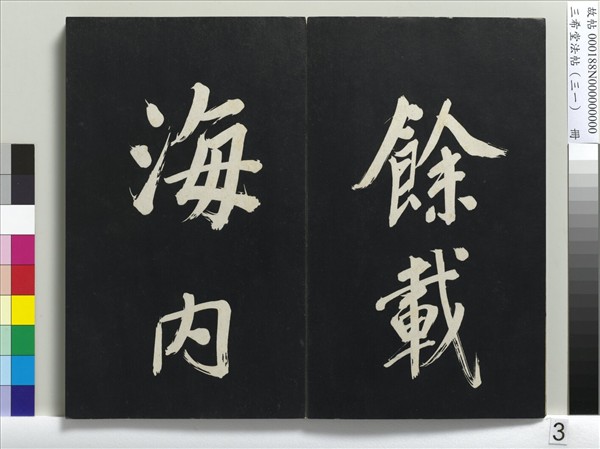 餘載
海内
故帖 000188N000000000
三希堂法帖（三一） 冊
3